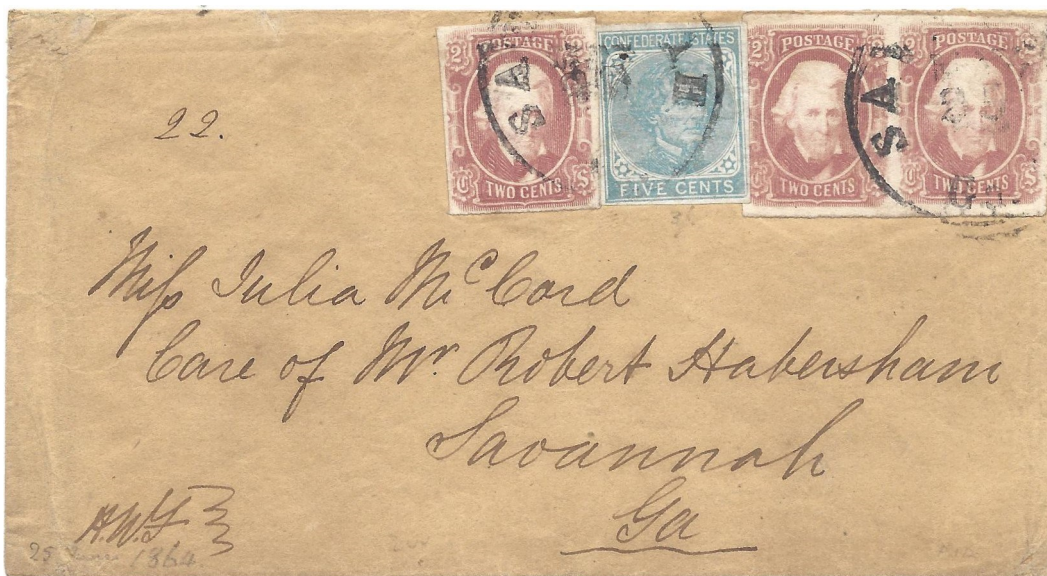 2 POSTAGE 2
C S
TWO CENTS
CONFEDERATE STATES
FIVE CENTS
2 POSTAGE 2
C S
TWO CENTS
2 POSTAGE 2
C S
TWO CENTS
SA H
SA
Ga.
22.
Miss Julia McCord
Care of Mr. Robert Habersham
Savannah
Ga
H.W.F.
25 June 1864.